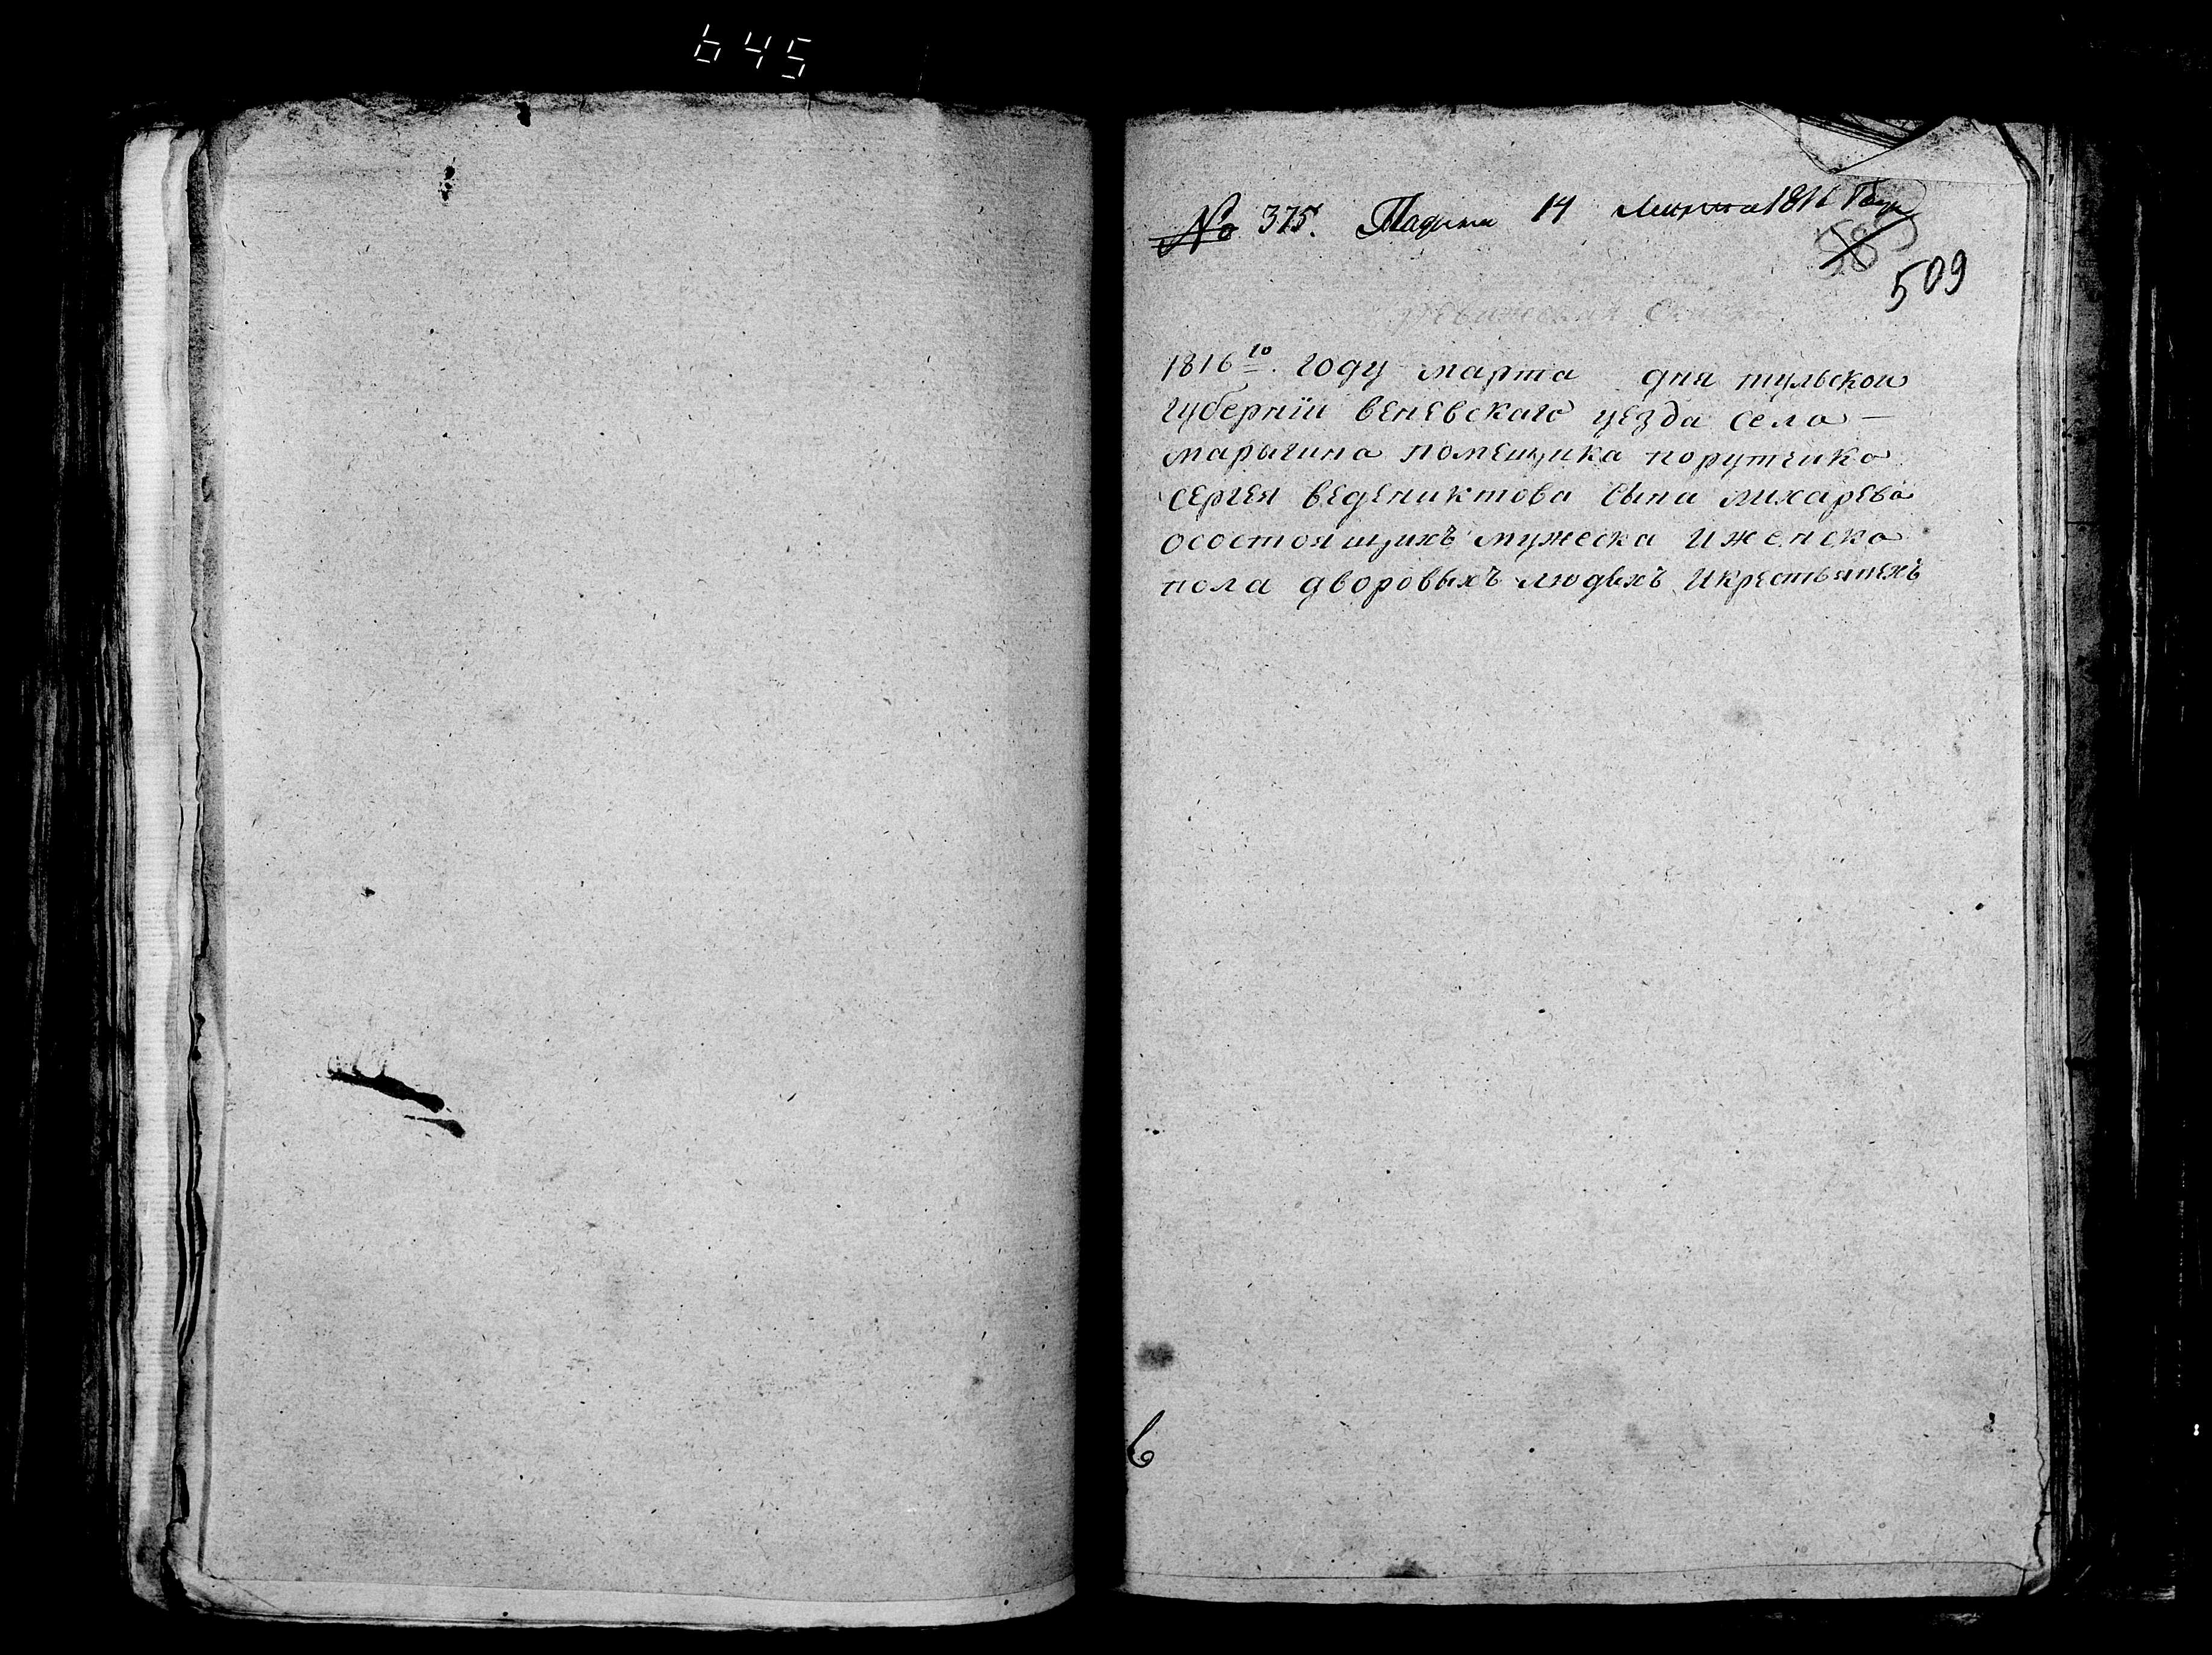 645
№ 375. Падана 14 Марта 1816 Году
509
Ревижская Скаска
1816го. году марта дня тульской
губерніи веневскаго уезда села —
марыгина помещика порутчика
сергея веденихтова сына лихарева
осостоящихъ мужеска ИженскА
пола дворовыхъ людѣхъ Икрестьянехъ
6